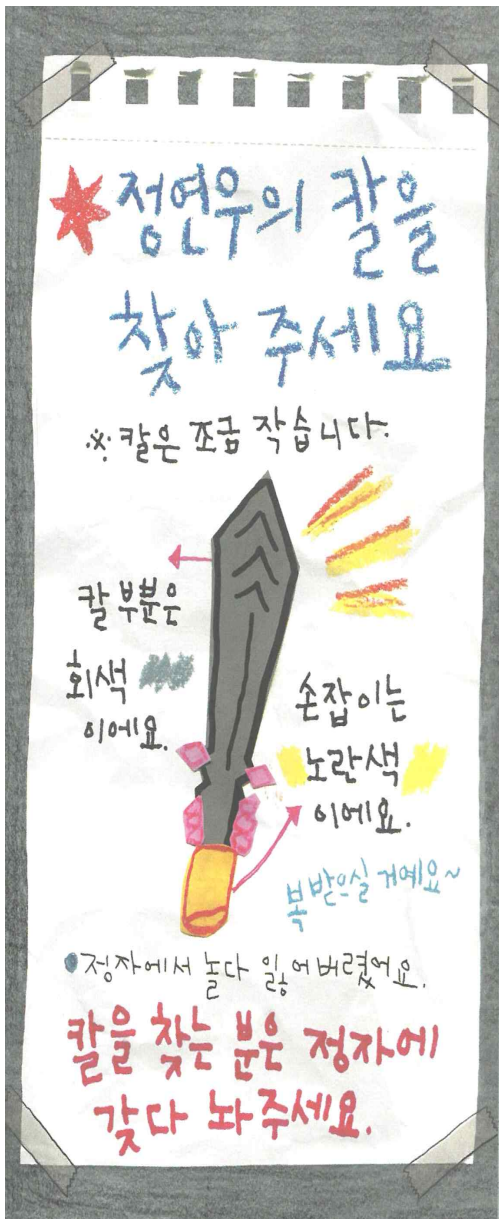 정연우의 칼을
찾아 주세요
※ 칼은 조금 작습니다.
칼 부뿐은
회색
이에요.
손잡이는
노란색
이에요.
복 받으실 거예요~
정자에서 놀다 잃어버렸어요.
칼을 찾는 분은 정자에
갖다 놔주세요.